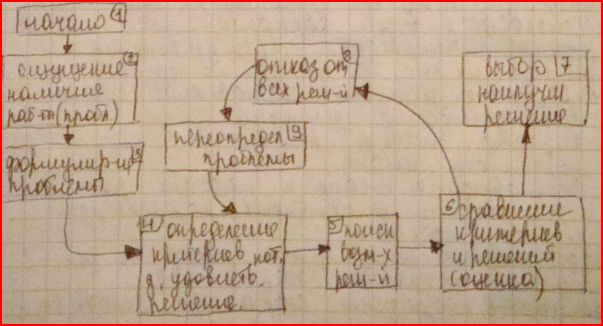 начало 1
ощущение 2
наличия
раб-ты (пробл)
формулир-ие 3
проблемы
4 определение
критериев, кот.
д. удовлетв.
решение.
5 поиск
возм-х
реш-й
6 сравнение
критериев
и решений
(оценка)
выбор 7
наилучш
решение
отказ от 8
всех реш-й
переопредел. 9
проблемы